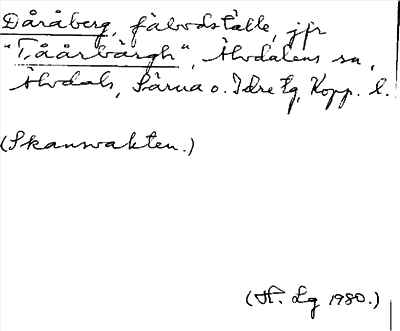 Dåråberg, fäbodställe, jfr
"Tåårbärgh", Älvdalens sn,
Älvdals, Särna o. Idre tg, Kopp. l.
(Skansvakten.)
(H. Lg 1980.)